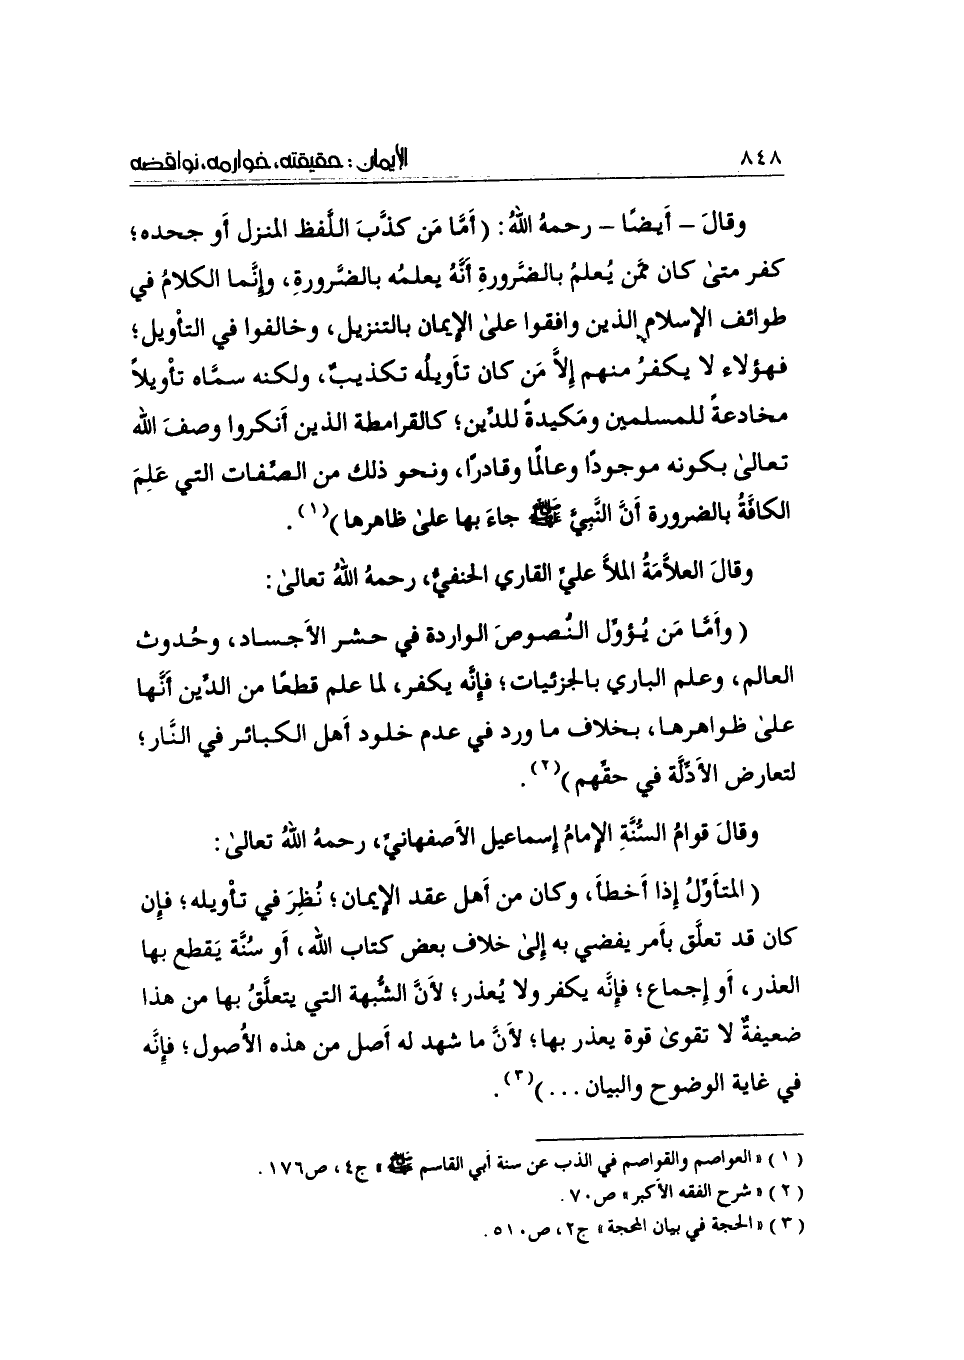 ٨٤٨
الإيمان : حقيقته، خوارمه، نواقضه
وقالَ – أيضًا – رحمهُ اللهُ : ( أمَّا مَن كذَّبَ اللَّفظ المنزل أو جحده ؛
كفر متىٰ كان ممَّن يُعلمُ بالضَّرورةِ أنَّهُ يعلمُه بالضَّرورةِ ، وإنَّما الكلامُ في
طوائف الإسلام الذين وافقوا علىٰ الإيمان بالتنزيل ، وخالفوا في التأْويل ؛
فهؤلاء لا يكفرُ منهم إلاَّ مَن كان تأويلُه تكذيبٌ ، ولكنه سمَّاه تأْويلاً
مخادعةً للمسلمين ومَكيدةً للدِّين ؛ كالقرامطة الذين أنكروا وصفَ الله
تعالىٰ بكونه موجودًا وعالمًا وقادرًا ، ونحو ذلك من الصِّفات التي عَلِمَ
الكافَّةُ بالضرورة أنَّ النَّبِيَّ ﷺ جاءَ بها علىٰ ظاهرها )(١) .
وقالَ العلاَّمَةُ الملاَّ عليِّ القاري الحنفيُّ، رحمهُ اللهُ تعالىٰ :
( وأمَّا مَن يُؤوِّل النُّصوصَ الواردة في حشر الأجساد ، وحُدوث
العالم ، وعلم الباري بالجزئيات ؛ فإنَّه يكفر ، لما علم قطعًا من الدِّين أنَّها
علىٰ ظواهرها ، بخلاف ما ورد في عدم خلود أهل الكبائر في النَّار ؛
لتعارض الأدِّلَّة في حقِّهم )(٢) .
وقالَ قوامُ السُّنَّةِ الإمامُ إسماعيل الأصفهانيُّ ، رحمهُ اللهُ تعالىٰ :
( المتأوِّلُ إذا أخطأ ، وكان من أهل عقد الإيمان ؛ نُظِرَ في تأْويله ؛ فإن
كان قد تعلَّق بأمر يفضي به إلىٰ خلاف بعض كتاب الله ، أو سُنَّة يَقطع بها
العذر ، أو إجماع ؛ فإنَّه يكفر ولا يُعذر ؛ لأنَّ الشُّبهة التي يتعلَّقُ بها من هذا
ضعيفةٌ لا تقوىٰ قوة يعذر بها ؛ لأنَّ ما شهد له أصل من هذه الأُصول ؛ فإنَّه
في غاية الوضوح والبيان ... )(٣) .
( ١ ) « العواصم والقواصم في الذب عن سنة أبي القاسم ﷺ » ج٤ ، ص١٧٦ .
( ٢ ) « شرح الفقه الأكبر » ص٧٠ .
( ٣ ) « الحجة في بيان المحجة » ج٢ ، ص٥١٠ .